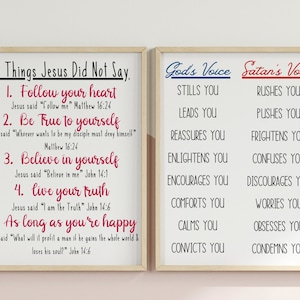 Things Jesus Did Not Say,
1. Follow your heart
Jesus said "Follow me" Matthew 16:24
2. Be True to yourself
said "Whoever wants to be my disciple must deny himself"
Matthew 16:24
3. Believe in yourself
Jesus said "Believe in me" John 14:1
4. Live your truth
Jesus said "I am the Truth" John 14:6
As long as you're happy
said "What will it profit a man if he gains the whole world &
loses his soul?" John 14:6
God's Voice
STILLS YOU
LEADS YOU
REASSURES YOU
ENLIGHTENS YOU
ENCOURAGES YOU
COMFORTS YOU
CALMS YOU
CONVICTS YOU
Satan's Voice
RUSHES YOU
PUSHES YOU
FRIGHTENS YOU
CONFUSES YOU
DISCOURAGES YOU
WORRIES YOU
OBSESSES YOU
CONDEMNS YOU